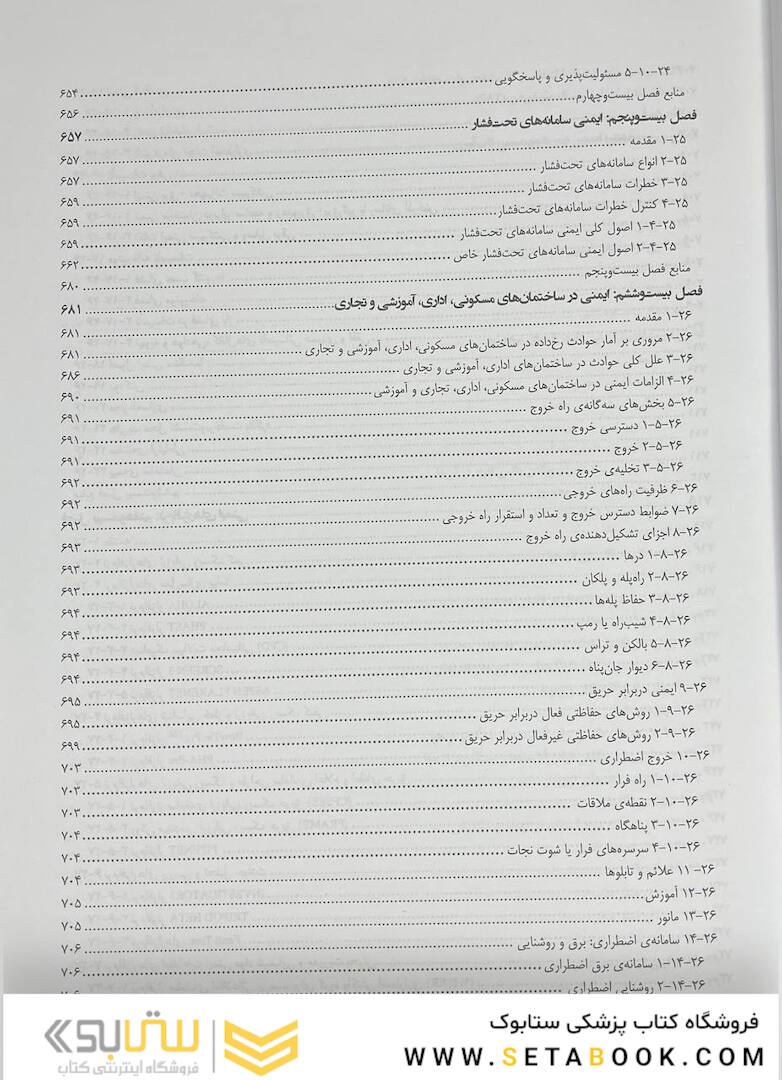 ۲۴-۱۰-۵ مسئولیت‌پذیری و پاسخگویی ۶۵۴
منابع فصل بیست‌وچهارم ۶۵۶
فصل بیست‌وپنجم: ایمنی سامانه‌های تحت‌فشار ۶۵۷
۲۵-۱ مقدمه ۶۵۷
۲۵-۲ انواع سامانه‌های تحت‌فشار ۶۵۷
۲۵-۳ خطرات سامانه‌های تحت‌فشار ۶۵۹
۲۵-۴ کنترل خطرات سامانه‌های تحت‌فشار ۶۵۹
۲۵-۴-۱ اصول کلی ایمنی سامانه‌های تحت‌فشار ۶۵۹
۲۵-۴-۲ اصول ایمنی سامانه‌های تحت‌فشار خاص ۶۶۲
منابع فصل بیست‌وپنجم ۶۸۰
فصل بیست‌وششم: ایمنی در ساختمان‌های مسکونی، اداری، آموزشی و تجاری ۶۸۱
۲۶-۱ مقدمه ۶۸۱
۲۶-۲ مروری بر آمار حوادث رخ‌داده در ساختمان‌های مسکونی، اداری، آموزشی و تجاری ۶۸۱
۲۶-۳ علل کلی حوادث در ساختمان‌های اداری، آموزشی و تجاری ۶۸۶
۲۶-۴ الزامات ایمنی در ساختمان‌های مسکونی، اداری، تجاری و آموزشی ۶۹۰
۲۶-۵ بخش‌های سه‌گانه‌ی راه خروج ۶۹۱
۲۶-۵-۱ دسترسی خروج ۶۹۱
۲۶-۵-۲ خروج ۶۹۱
۲۶-۵-۳ تخلیه‌ی خروج ۶۹۲
۲۶-۶ ظرفیت راه‌های خروجی ۶۹۲
۲۶-۷ ضوابط دسترس خروج و تعداد و استقرار راه خروجی ۶۹۲
۲۶-۸ اجزای تشکیل‌دهنده‌ی راه خروج ۶۹۳
۲۶-۸-۱ درها ۶۹۳
۲۶-۸-۲ راه‌پله و پلکان ۶۹۳
۲۶-۸-۳ حفاظ پله‌ها ۶۹۴
۲۶-۸-۴ شیب‌راه یا رمپ ۶۹۴
۲۶-۸-۵ بالکن و تراس ۶۹۴
۲۶-۸-۶ دیوار جان‌پناه ۶۹۴
۲۶-۹ ایمنی دربرابر حریق ۶۹۵
۲۶-۹-۱ روش‌های حفاظتی فعال دربرابر حریق ۶۹۵
۲۶-۹-۲ روش‌های حفاظتی غیرفعال دربرابر حریق ۶۹۹
۲۶-۱۰ خروج اضطراری ۷۰۳
۲۶-۱۰-۱ راه فرار ۷۰۳
۲۶-۱۰-۲ نقطه‌ی ملاقات ۷۰۳
۲۶-۱۰-۳ پناهگاه ۷۰۴
۲۶-۱۰-۴ سرسره‌های فرار یا شوت نجات ۷۰۴
۲۶-۱۱ علائم و تابلوها ۷۰۴
۲۶-۱۲ آموزش ۷۰۵
۲۶-۱۳ مانور ۷۰۵
۲۶-۱۴ سامانه‌ی اضطراری: برق و روشنایی ۷۰۶
۲۶-۱۴-۱ سامانه‌ی برق اضطراری ۷۰۶
۲۶-۱۴-۲ روشنایی اضطراری
فروشگاه کتاب پزشکی ستابوک
WWW.SETABOOK.COM
ستابوک
فروشگاه اینترنتی کتاب